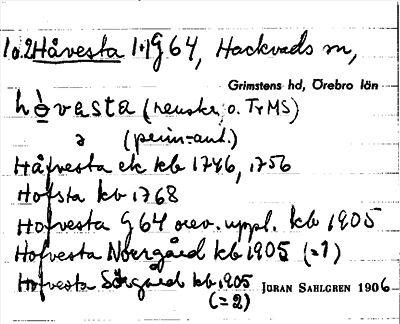 1o.2 Håvesta 1+1 G 64, Hackvads sn,
Grimstens hd, Örebro län
hòvesta (neuskr. o. TrMS)
ə (perin-ant.)
Håfvesta ek kb 1746, 1756
Hofsta kb 1768
Hofvesta G 64 orev. uppl. kb 1905
Hofvesta Norrgård kb 1905 (=1)
Hofvesta Sörgård kb 1905
(=2) JÖRAN SAHLGREN 1906